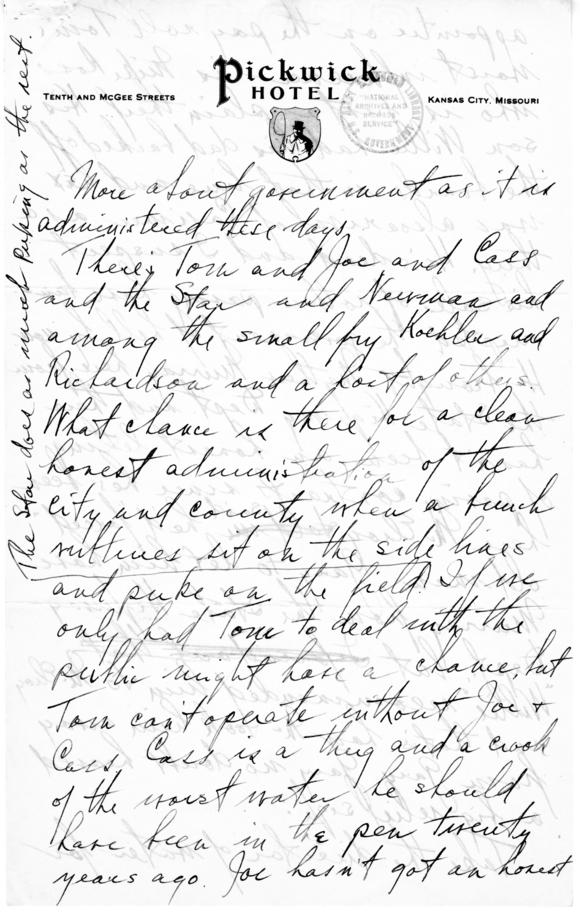 Pickwick
HOTEL
TENTH AND MCGEE STREETS
KANSAS CITY, MISSOURI
NATIONAL
ARCHIVES AND
RECORDS
SERVICE
More about government as it is
administered these days.
There's Tom and Joe and Cass
and the Star and Newman and
among the small fry Koehler and
Richardson and a host of others.
What chance is there for a clean
honest administration of the
city and county when a bunch
vultures sit on the side lines
and puke on the field. If we
only had Tom to deal with the
public might have a chance, but
Tom can't operate without Joe +
Cass. Cass is a thug and a crook
of the worst water, he should
have been in the pen twenty
years ago. Joe hasn't got an honest
The Star does as much puking as the rest.